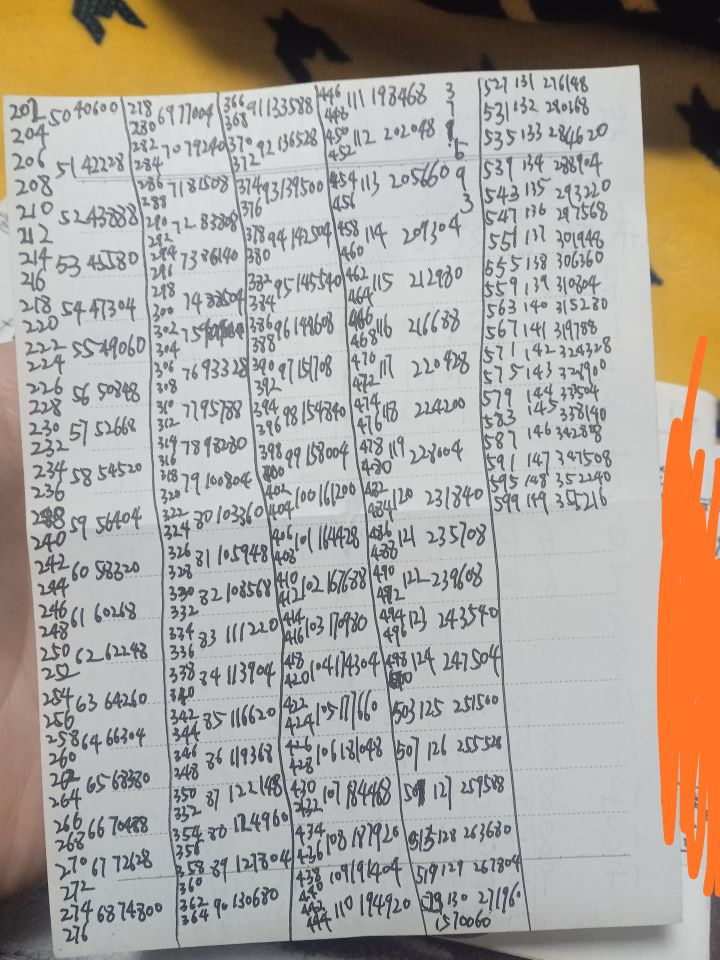 202 50 40600
204
206 51 42228
208
210 52 43888
212
214 53 45580
216
218 54 47304
220
222 55 49060
224
226 56 50848
228
230 57 52668
232
234 58 54520
236
238 59 56404
240
242 60 58320
244
246 61 60268
248
250 62 62248
252
254 63 64260
256
258 64 66304
260
262 65 68380
264
266 66 70488
268
270 67 72628
272
274 68 74800
276
278 69 77004
280
282 70 79240
284
286 71 81508
288
290 72 83808
292
294 73 86140
296
298 74 88504
300
302 75
304
306 76 93328
308
310 77 95788
312
314 78 98280
316
318 79 100804
320
322 80 103360
324
326 81 105948
328
330 82 108568
332
334 83 111220
336
338 84 113904
340
342 85 116620
344
346 86 119368
348
350 87 122148
352
354 88 124960
356
358 89 127804
360
362 90 130680
364
366 91 133588
368
370 92 136528
372
374 93 139500
376
378 94 142504
380
382 95 145540
384
386 96 148608
388
390 97 151708
392
294 98 154840
396
398 99 158004
400
402 100 161200
404
406 101 164428
408
410 102 167688
412
414 103 170980
416
418 104 174304
420
422 105 177660
424
426 106 181048
428
430 107 184468
432
434 108 187920
436
438 109 191404
440
442 110 194920
444
446 111 198468 3
448
450 112 202048
452
454 113 205660 9
456 3
458 114 209304
460
462 115 212980
464
466 116 216688
468
470 117 220428
472
474 118 224200
476
478 119 228004
480
482 120 231840
484
486 121 235708
488
490 122 239608
492
494 123 243540
496
498 124 247504
503 125 251500
507 126 255528
127 259588
515 128 263680
519 129 267804
130 271960
1570060
527 131 276148
531 132 280368
535 133 284620
539 134 288904
543 135 293220
547 136 297568
551 137 301948
555 138 306360
559 139 310804
563 140 315280
567 141 319788
571 142 324328
575 143 328900
579 144 33504
583 145 338140
587 146 342808
591 147 347508
595 148 352240
599 149 355216